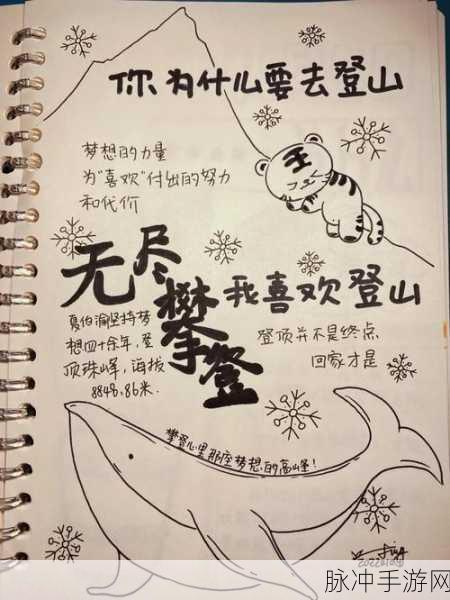 你为什么要去登山
梦想的力量
为“喜欢”付出的努力
和代价
无尽攀登
我喜欢登山
夏伯渝坚持梦
想四十余年，登
顶珠峰，海拔
8848.86米.
登顶并不是终点
回家才是
攀登心里那座梦想的高峰！
王
脉冲手游网